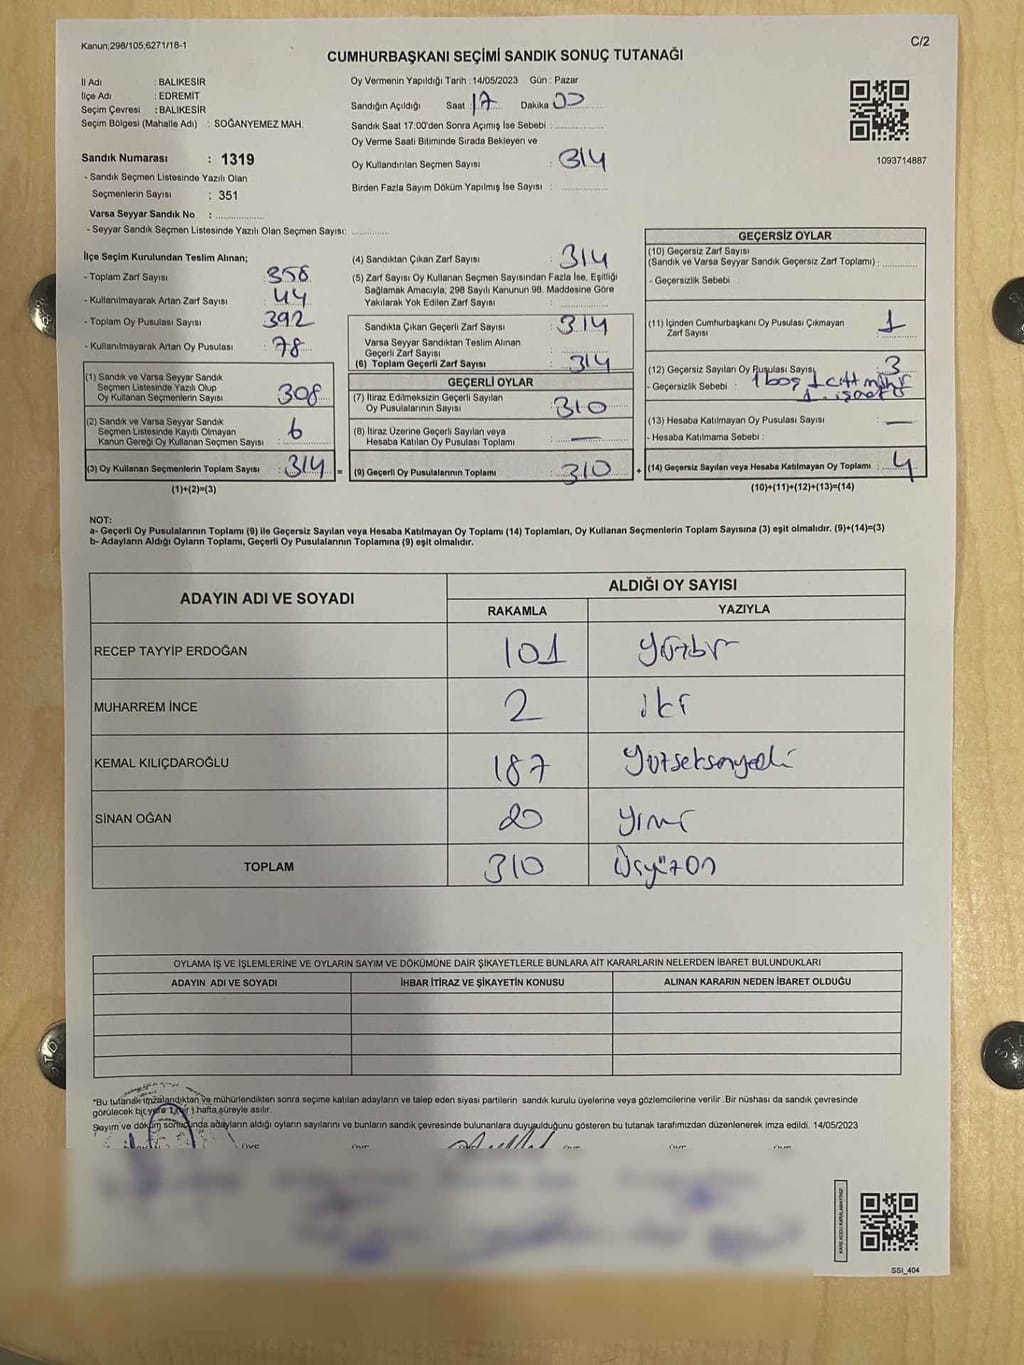 Kanun;298/105;6271/18-1
C/2
CUMHURBAŞKANI SEÇİMİ SANDIK SONUÇ TUTANAĞI
İl Adı : BALIKESİR
İlçe Adı : EDREMİT
Seçim Çevresi : BALIKESİR
Seçim Bölgesi (Mahalle Adı) : SOĞANYEMEZ MAH.
Sandık Numarası : 1319
- Sandık Seçmen Listesinde Yazılı Olan
Seçmenlerin Sayısı : 351
Varsa Seyyar Sandık No :
- Seyyar Sandık Seçmen Listesinde Yazılı Olan Seçmen Sayısı:
Oy Vermenin Yapıldığı Tarih :14/05/2023 Gün : Pazar
Sandığın Açıldığı Saat 17 Dakika 00
Sandık Saat 17:00'den Sonra Açımış İse Sebebi :
Oy Verme Saati Bitiminde Sırada Bekleyen ve
Oy Kullandırılan Seçmen Sayısı : 314
Birden Fazla Sayım Döküm Yapılmış İse Sayısı :
1093714887
İlçe Seçim Kurulundan Teslim Alınan;
- Toplam Zarf Sayısı : 358
- Kullanılmayarak Artan Zarf Sayısı : 44
- Toplam Oy Pusulası Sayısı : 392
- Kullanılmayarak Artan Oy Pusulası : 78
(1) Sandık ve Varsa Seyyar Sandık
Seçmen Listesinde Yazılı Olup
Oy Kullanan Seçmenlerin Sayısı : 308
(2) Sandık ve Varsa Seyyar Sandık
Seçmen Listesinde Kayıtlı Olmayan
Kanun Gereği Oy Kullanan Seçmen Sayısı : 6
(3) Oy Kullanan Seçmenlerin Toplam Sayısı : 314 =
(1)+(2)=(3)
(4) Sandıktan Çıkan Zarf Sayısı : 314
(5) Zarf Sayısı Oy Kullanan Seçmen Sayısından Fazla İse, Eşitliği
Sağlamak Amacıyla; 298 Sayılı Kanunun 98. Maddesine Göre
Yakılarak Yok Edilen Zarf Sayısı :
Sandıkta Çıkan Geçerli Zarf Sayısı : 314
Varsa Seyyar Sandıktan Teslim Alınan
Geçerli Zarf Sayısı :
(6) Toplam Geçerli Zarf Sayısı : 314
GEÇERLİ OYLAR
(7) İtiraz Edilmeksizin Geçerli Sayılan
Oy Pusulalarının Sayısı : 310
(8) İtiraz Üzerine Geçerli Sayılan veya
Hesaba Katılan Oy Pusulası Toplamı : —
(9) Geçerli Oy Pusulalarının Toplamı : 310 +
GEÇERSİZ OYLAR
(10) Geçersiz Zarf Sayısı
(Sandık ve Varsa Seyyar Sandık Geçersiz Zarf Toplamı) :
- Geçersizlik Sebebi :
(11) İçinden Cumhurbaşkanı Oy Pusulası Çıkmayan
Zarf Sayısı : 1
(12) Geçersiz Sayılan Oy Pusulası Sayısı : 3
- Geçersizlik Sebebi : 1 boş 1 çift mühür
1 işaret
(13) Hesaba Katılmayan Oy Pusulası Sayısı : —
- Hesaba Katılmama Sebebi :
(14) Geçersiz Sayılan veya Hesaba Katılmayan Oy Toplamı : 4
(10)+(11)+(12)+(13)=(14)
NOT:
a- Geçerli Oy Pusulalarının Toplamı (9) ile Geçersiz Sayılan veya Hesaba Katılmayan Oy Toplamı (14) Toplamları, Oy Kullanan Seçmenlerin Toplam Sayısına (3) eşit olmalıdır. (9)+(14)=(3)
b- Adayların Aldığı Oyların Toplamı, Geçerli Oy Pusulalarının Toplamına (9) eşit olmalıdır.
ADAYIN ADI VE SOYADI
ALDIĞI OY SAYISI
RAKAMLA YAZIYLA
RECEP TAYYİP ERDOĞAN 101 Yüzbir
MUHARREM İNCE 2 iki
KEMAL KILIÇDAROĞLU 187 Yüzseksenyedi
SİNAN OĞAN 20 Yirmi
TOPLAM 310 Üçyüzon
OYLAMA İŞ VE İŞLEMLERİNE VE OYLARIN SAYIM VE DÖKÜMÜNE DAİR ŞİKAYETLERLE BUNLARA AİT KARARLARIN NELERDEN İBARET BULUNDUKLARI
ADAYIN ADI VE SOYADI İHBAR İTİRAZ VE ŞİKAYETİN KONUSU ALINAN KARARIN NEDEN İBARET OLDUĞU
*Bu tutanak imzalandıktan ve mühürlendikten sonra seçime katılan adayların ve talep eden siyasi partilerin sandık kurulu üyelerine veya gözlemcilerine verilir .Bir nüshası da sandık çevresinde
görülecek bir yere 1 (bir) hafta süreyle asılır.
Sayım ve döküm sonucunda adayların aldığı oyların sayılarını ve bunların sandık çevresinde bulunanlara duyurulduğunu gösteren bu tutanak tarafımızdan düzenlenerek imza edildi. 14/05/2023
KARE KODU KARALAMAYINIZ!
SSI_404